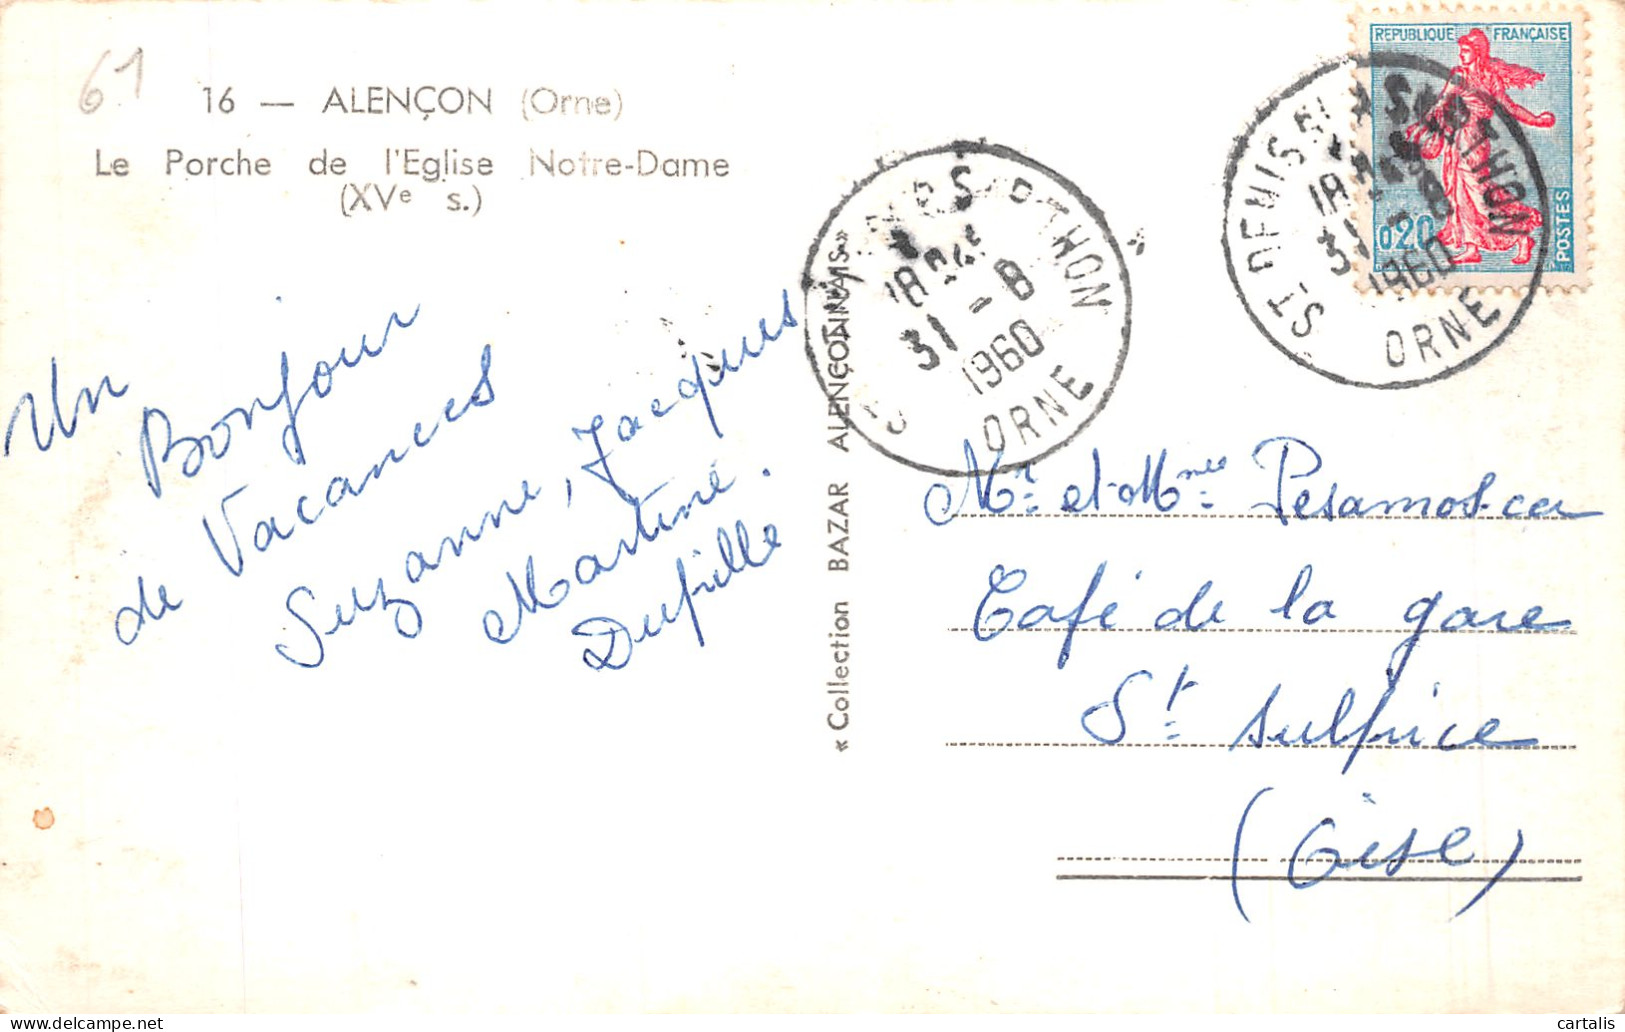 61
16 — ALENÇON (Orne)
Le Porche de l'Eglise Notre-Dame
(XVe s.)
Un
Bonjour
de Vacances
Suzanne, Jacques
Martine.
« Collection BAZAR ALENÇONNAIS»
18
31-8
1960
ORNE
REPUBLIQUE FRANÇAISE
0,20
POSTES
ST DENIS S SARTHON
31-8
1960
ORNE
Mr. et Mme.
Café de la gare
St. Sulpice
(Oise)
cartalis